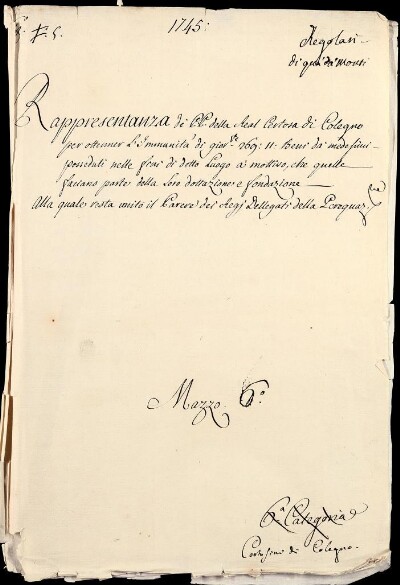 1745:
Regolari
di quà da Monti
Rappresentanza de PP. della Real Certosa di Colegno
per ottener l'Immunità di gior.te 269: 11. beni da medesimi
posseduti nelle fini di detto Luogo a mottivo, che quelle
faciano parte della loro dottazione e fondazione
Alla quale resta unito il Parere dei Regj Dellegati della Perequaz.ne
Mazzo 6.o
6.a Categoria
Certosini di Colegno